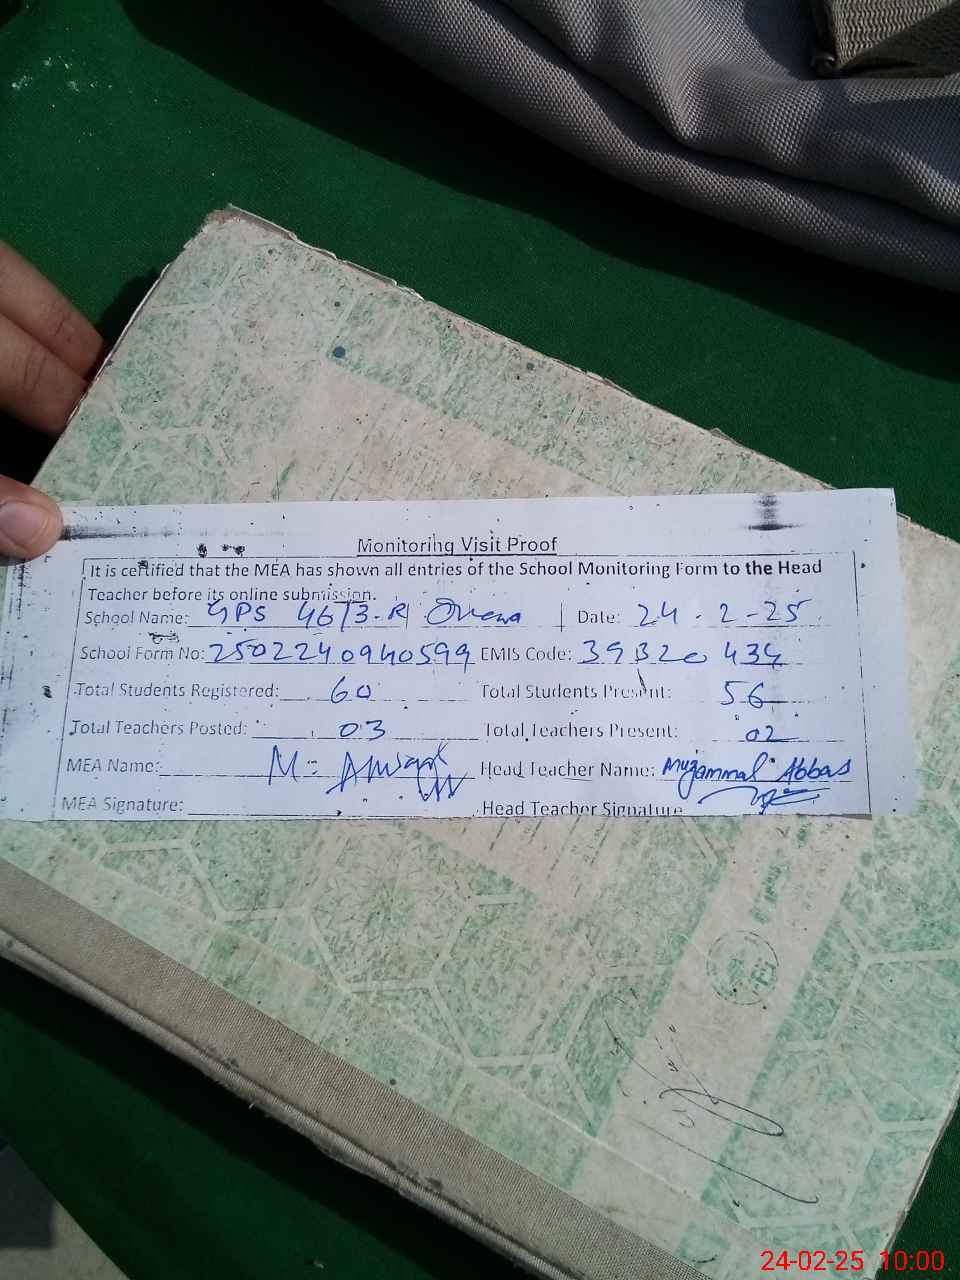 Monitoring Visit Proof
It is certified that the MEA has shown all entries of the School Monitoring Form to the Head
Teacher before its online submission.
School Name: GPS 46/3-R Date: 24-2-25
School Form No: 2502240940599 EMIS Code: 39320434
Total Students Registered: 60 Total Students Present: 56
Total Teachers Posted: 03 Total Teachers Present: 02
MEA Name: M: Anwar Head Teacher Name: Muzammal Abbas
MEA Signature: Head Teacher Signature
24-02-25 10:00